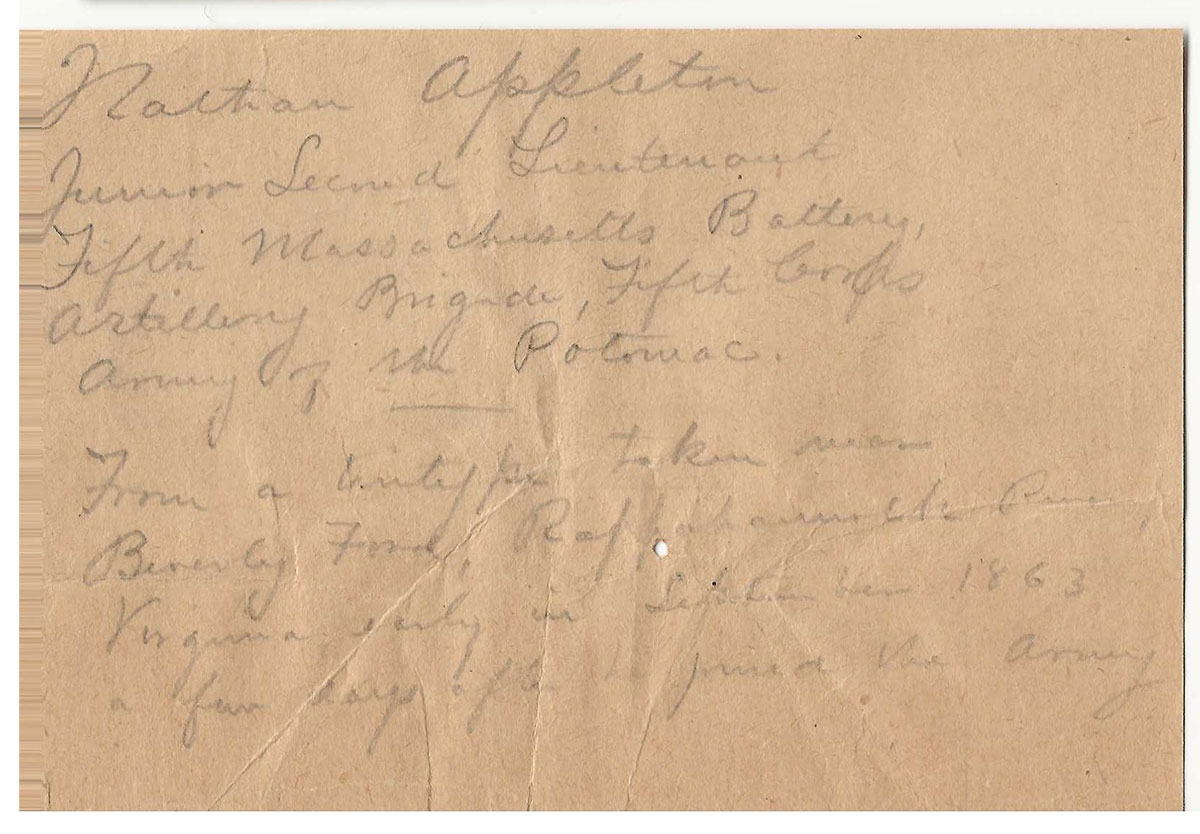 Nathan Appleton
Junior Second Lieutenant
Fifth Massachusetts Battery,
Artillery Brigade, Fifth Corps
Army of the Potomac.
From a tintype taken near
Beverly Ford, Rappahannock River,
Virginia, early in September 1863
a few days after he joined the Army